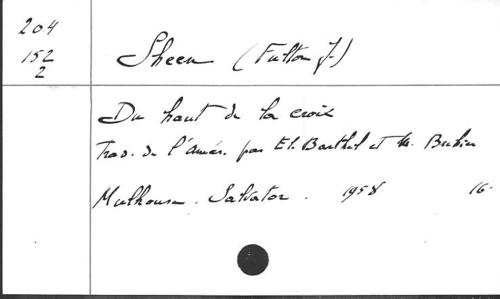 204
152
2
Sheen (Fulton J.)
Du haut de la croix
Trad. de l'Amér. par Et. Barthel et M.
Mulhouse. Salvator. 1958 16.